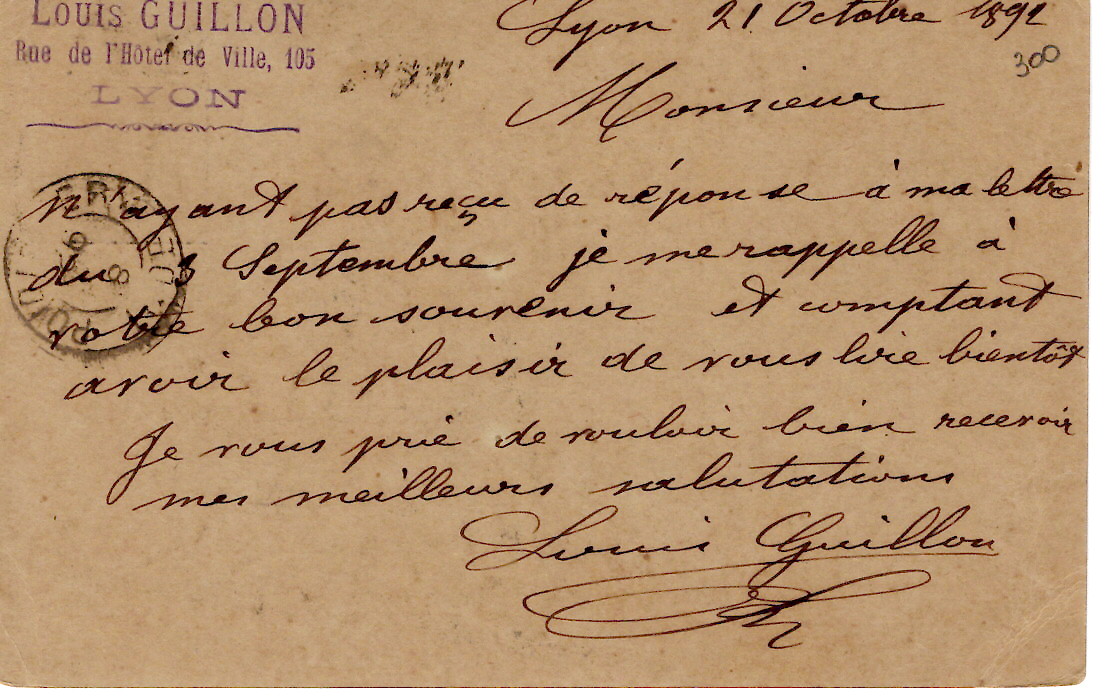 LOUIS GUILLON
Rue de l'Hôtel de Ville, 105
LYON
Lyon 21 Octobre 1891
300
Monsieur
N'ayant pas reçu de réponse à ma lettre
du 3 Septembre je me rappelle à
votre bon souvenir et comptant
avoir le plaisir de vous lire bientôt
Je vous prie de vouloir bien recevoir
mes meilleurs salutations
Louis Guillon